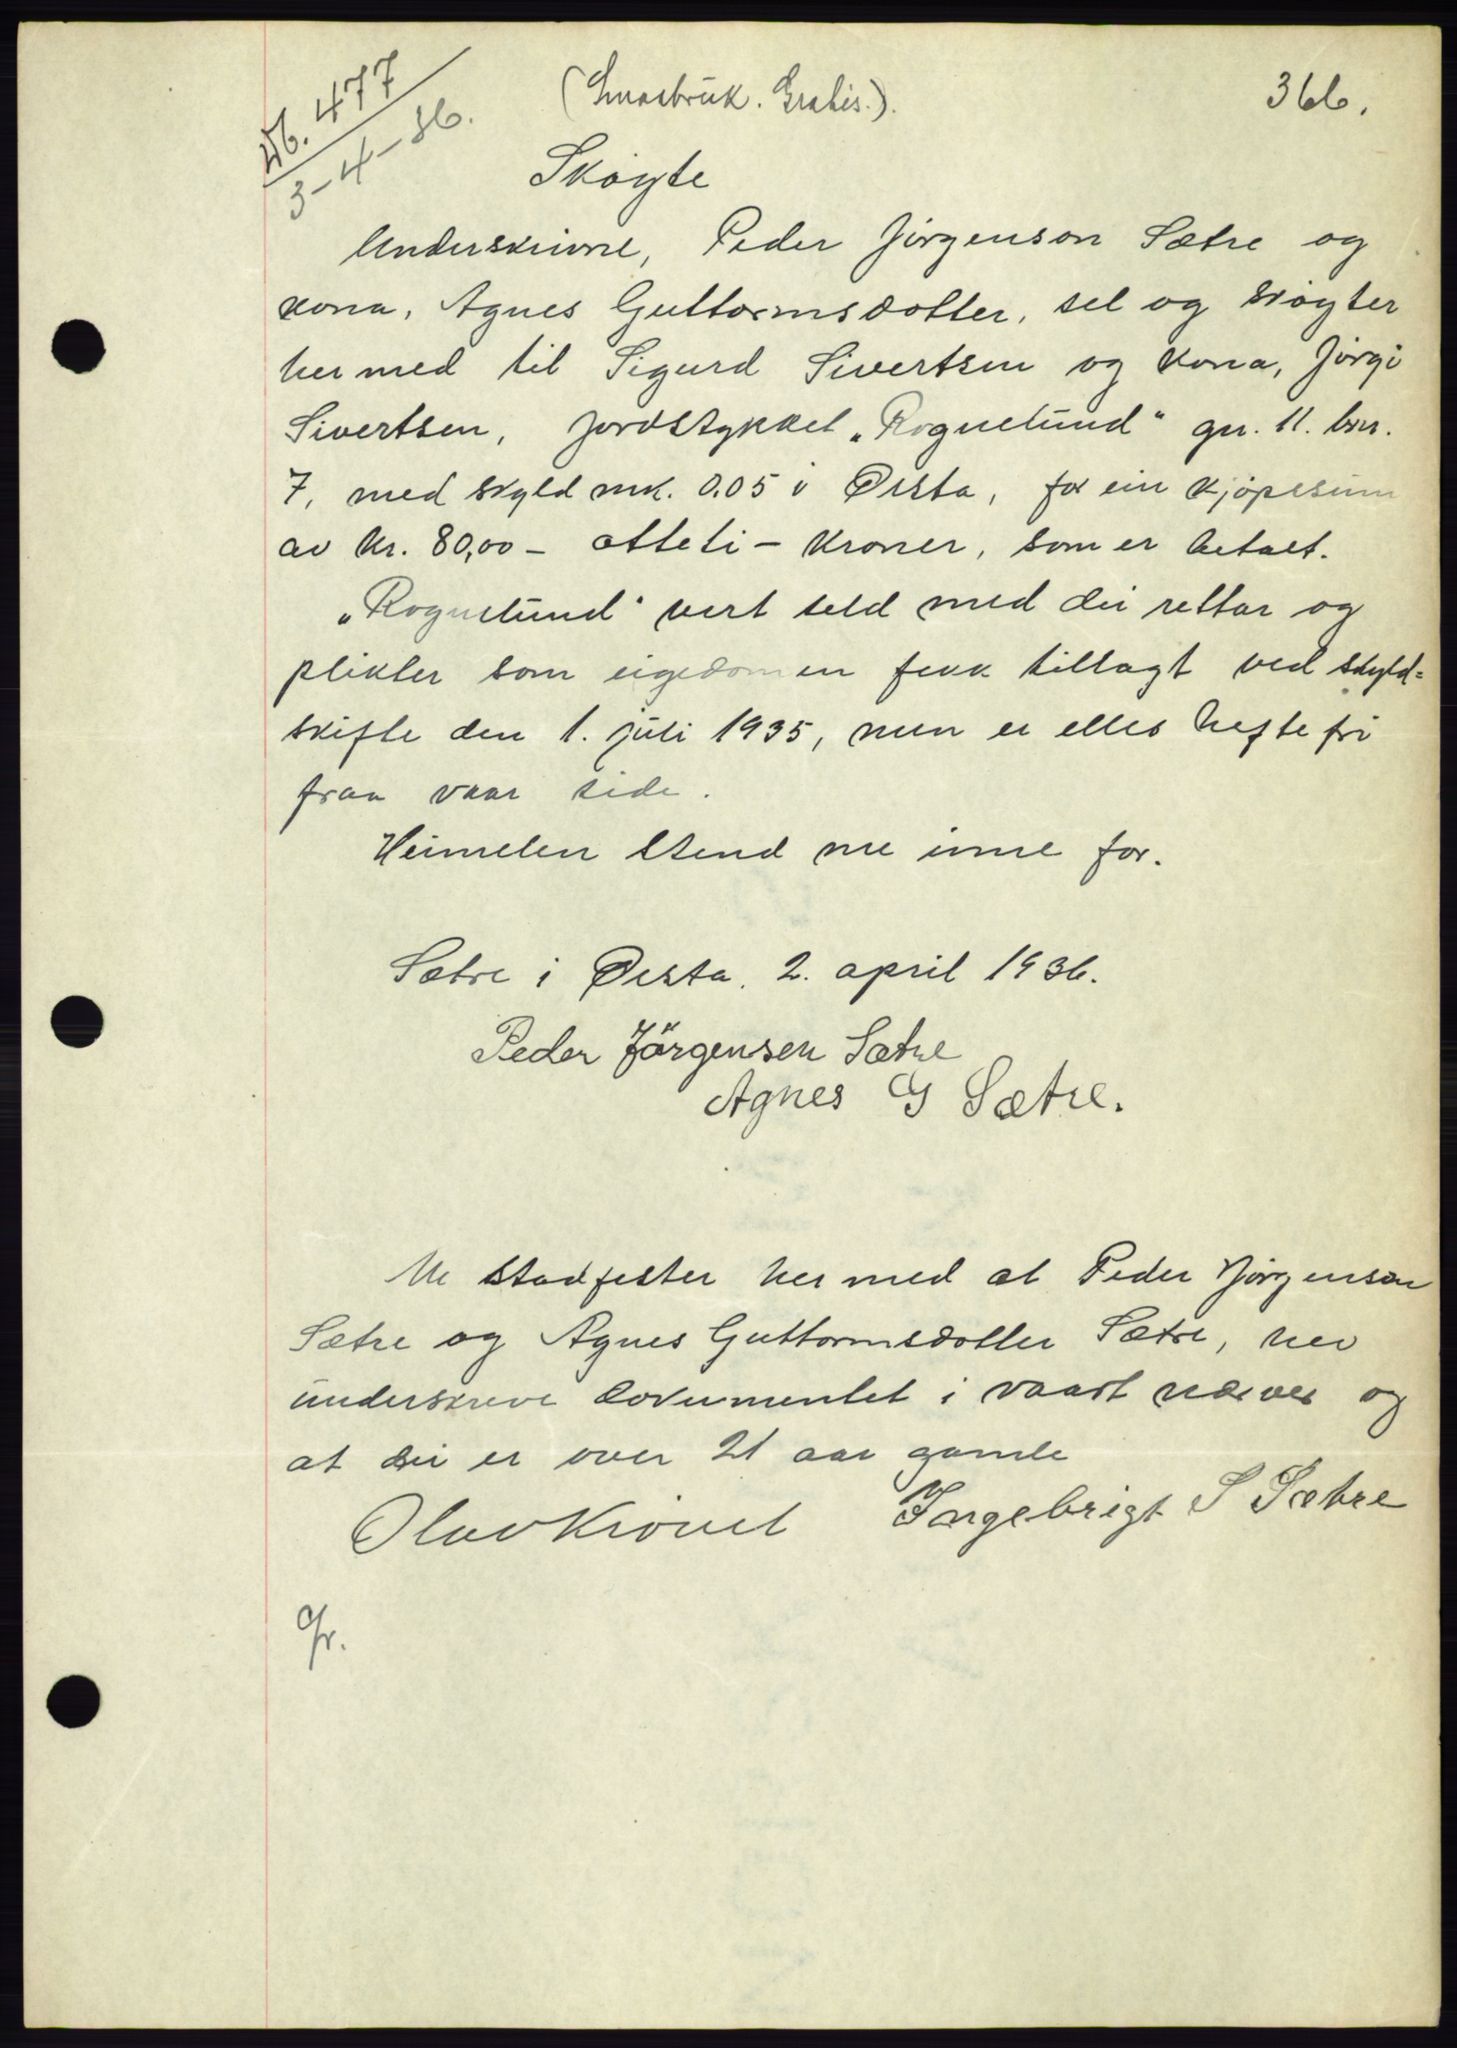 (Smaabruk. Gratis.).
366.
Nb. 477
3-4-36.
Skøyte
Underskrivne, Peder Jørgenson Sætre og
kona, Agnes Guttormsdotter, sel og skøyter
hermed til Sigurd Sivertsen og kona, Jørgi
Sivertsen, jordstykket „Rognelund" gnr. 11. bnr.
7, med skyld mk. 0.05 i Ørsta, for ein kjøpesum
av kr. 80,00 - otteti - kroner, som er betalt.
„Rognelund" vert seld med dei rettar og
plikter som eigedomen fekk tillagt ved skyld=
skifte den 1. juli 1935, men er elles heftefri
fraa vaar side.
Heimelen stend me inne for.
Sætre i Ørsta. 2. april 1936.
Peder Jörgensen Sætre
Agnes G Sætre.
Me stadfester hermed at Peder Jørgenson
Sætre og Agnes Guttormsdotter Sætre, hev
underskreve dokumentet i vaart nærver og
at dei er over 21 aar gamle
Olav Ingebrigt S Sætre